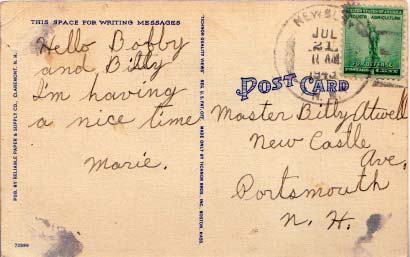 THIS SPACE FOR WRITING MESSAGES
Hello Bobby
and Billy
I'm having
a nice time
Marie.
PUB. BY RELIABLE PAPER & SUPPLY CO., CLAREMONT, N. H.
72899
"TICHNOR QUALITY VIEWS" REG. U. S. PAT. OFF. MADE ONLY BY TICHNOR BROS. INC. BOSTON, MASS.
POST CARD
JUL
21
11 AM
1943
N. H.
INDUSTRY AGRICULTURE
FOR DEFENSE
Master Billy Atwell
New Castle
Ave.
Portsmouth
N. H.